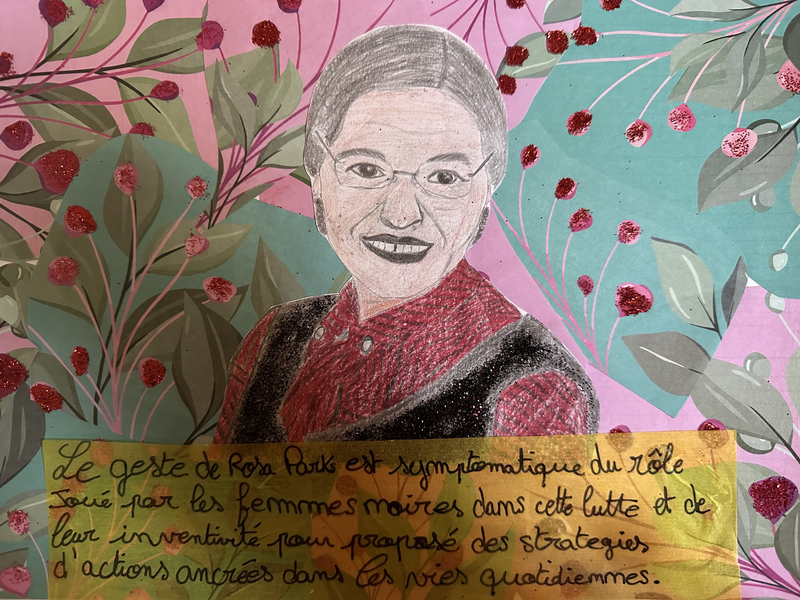 Le geste de Rosa Parks est symptomatique du rôle
Joué par les femmes noires dans cette lutte et de
leur inventivité pour proposé des strategies
d'actions ancrées dans les vies quotidiennes.